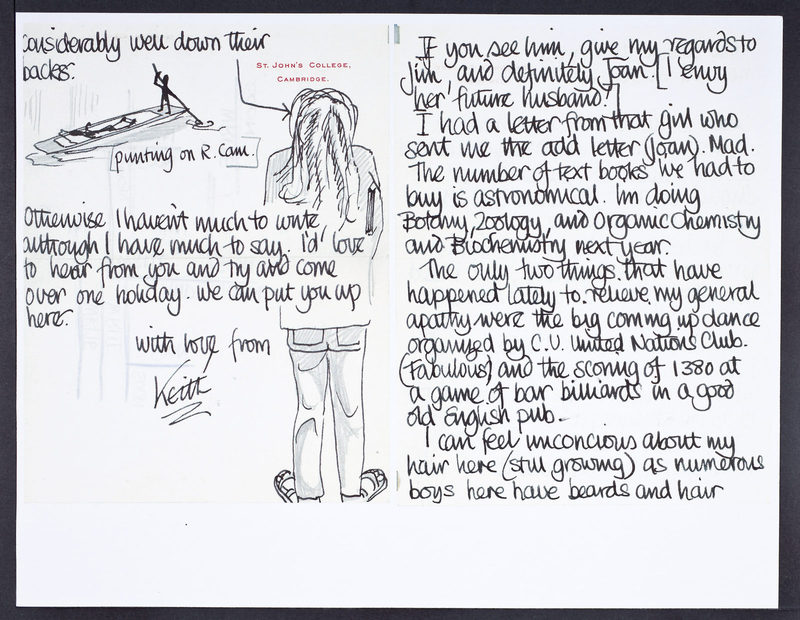 considerably well down their
backs.
ST. JOHN'S COLLEGE,
CAMBRIDGE.
punting on R. Cam.
Otherwise I haven't much to write
although I have much to say. I'd love
to hear from you and try and come
over one holiday. We can put you up
here.
with love from
Keith
If you see him, give my regards to
Jim, and definitely Joan. [I envy
her future husband!]
I had a letter from that girl who
sent me the odd letter (Joan). Mad.
The number of text books we had to
buy is astronomical. I'm doing
Botany, Zoology, and Organic Chemistry
and Biochemistry next year.
The only two things that have
happened lately to relieve my general
apathy were the big coming up dance
organized by C.U. United Nations Club.
(Fabulous) and the scoring of 1380 at
a game of bar billiards in a good
old English pub.
I can feel unconcious about my
hair here (still growing) as numerous
boys here have beards and hair